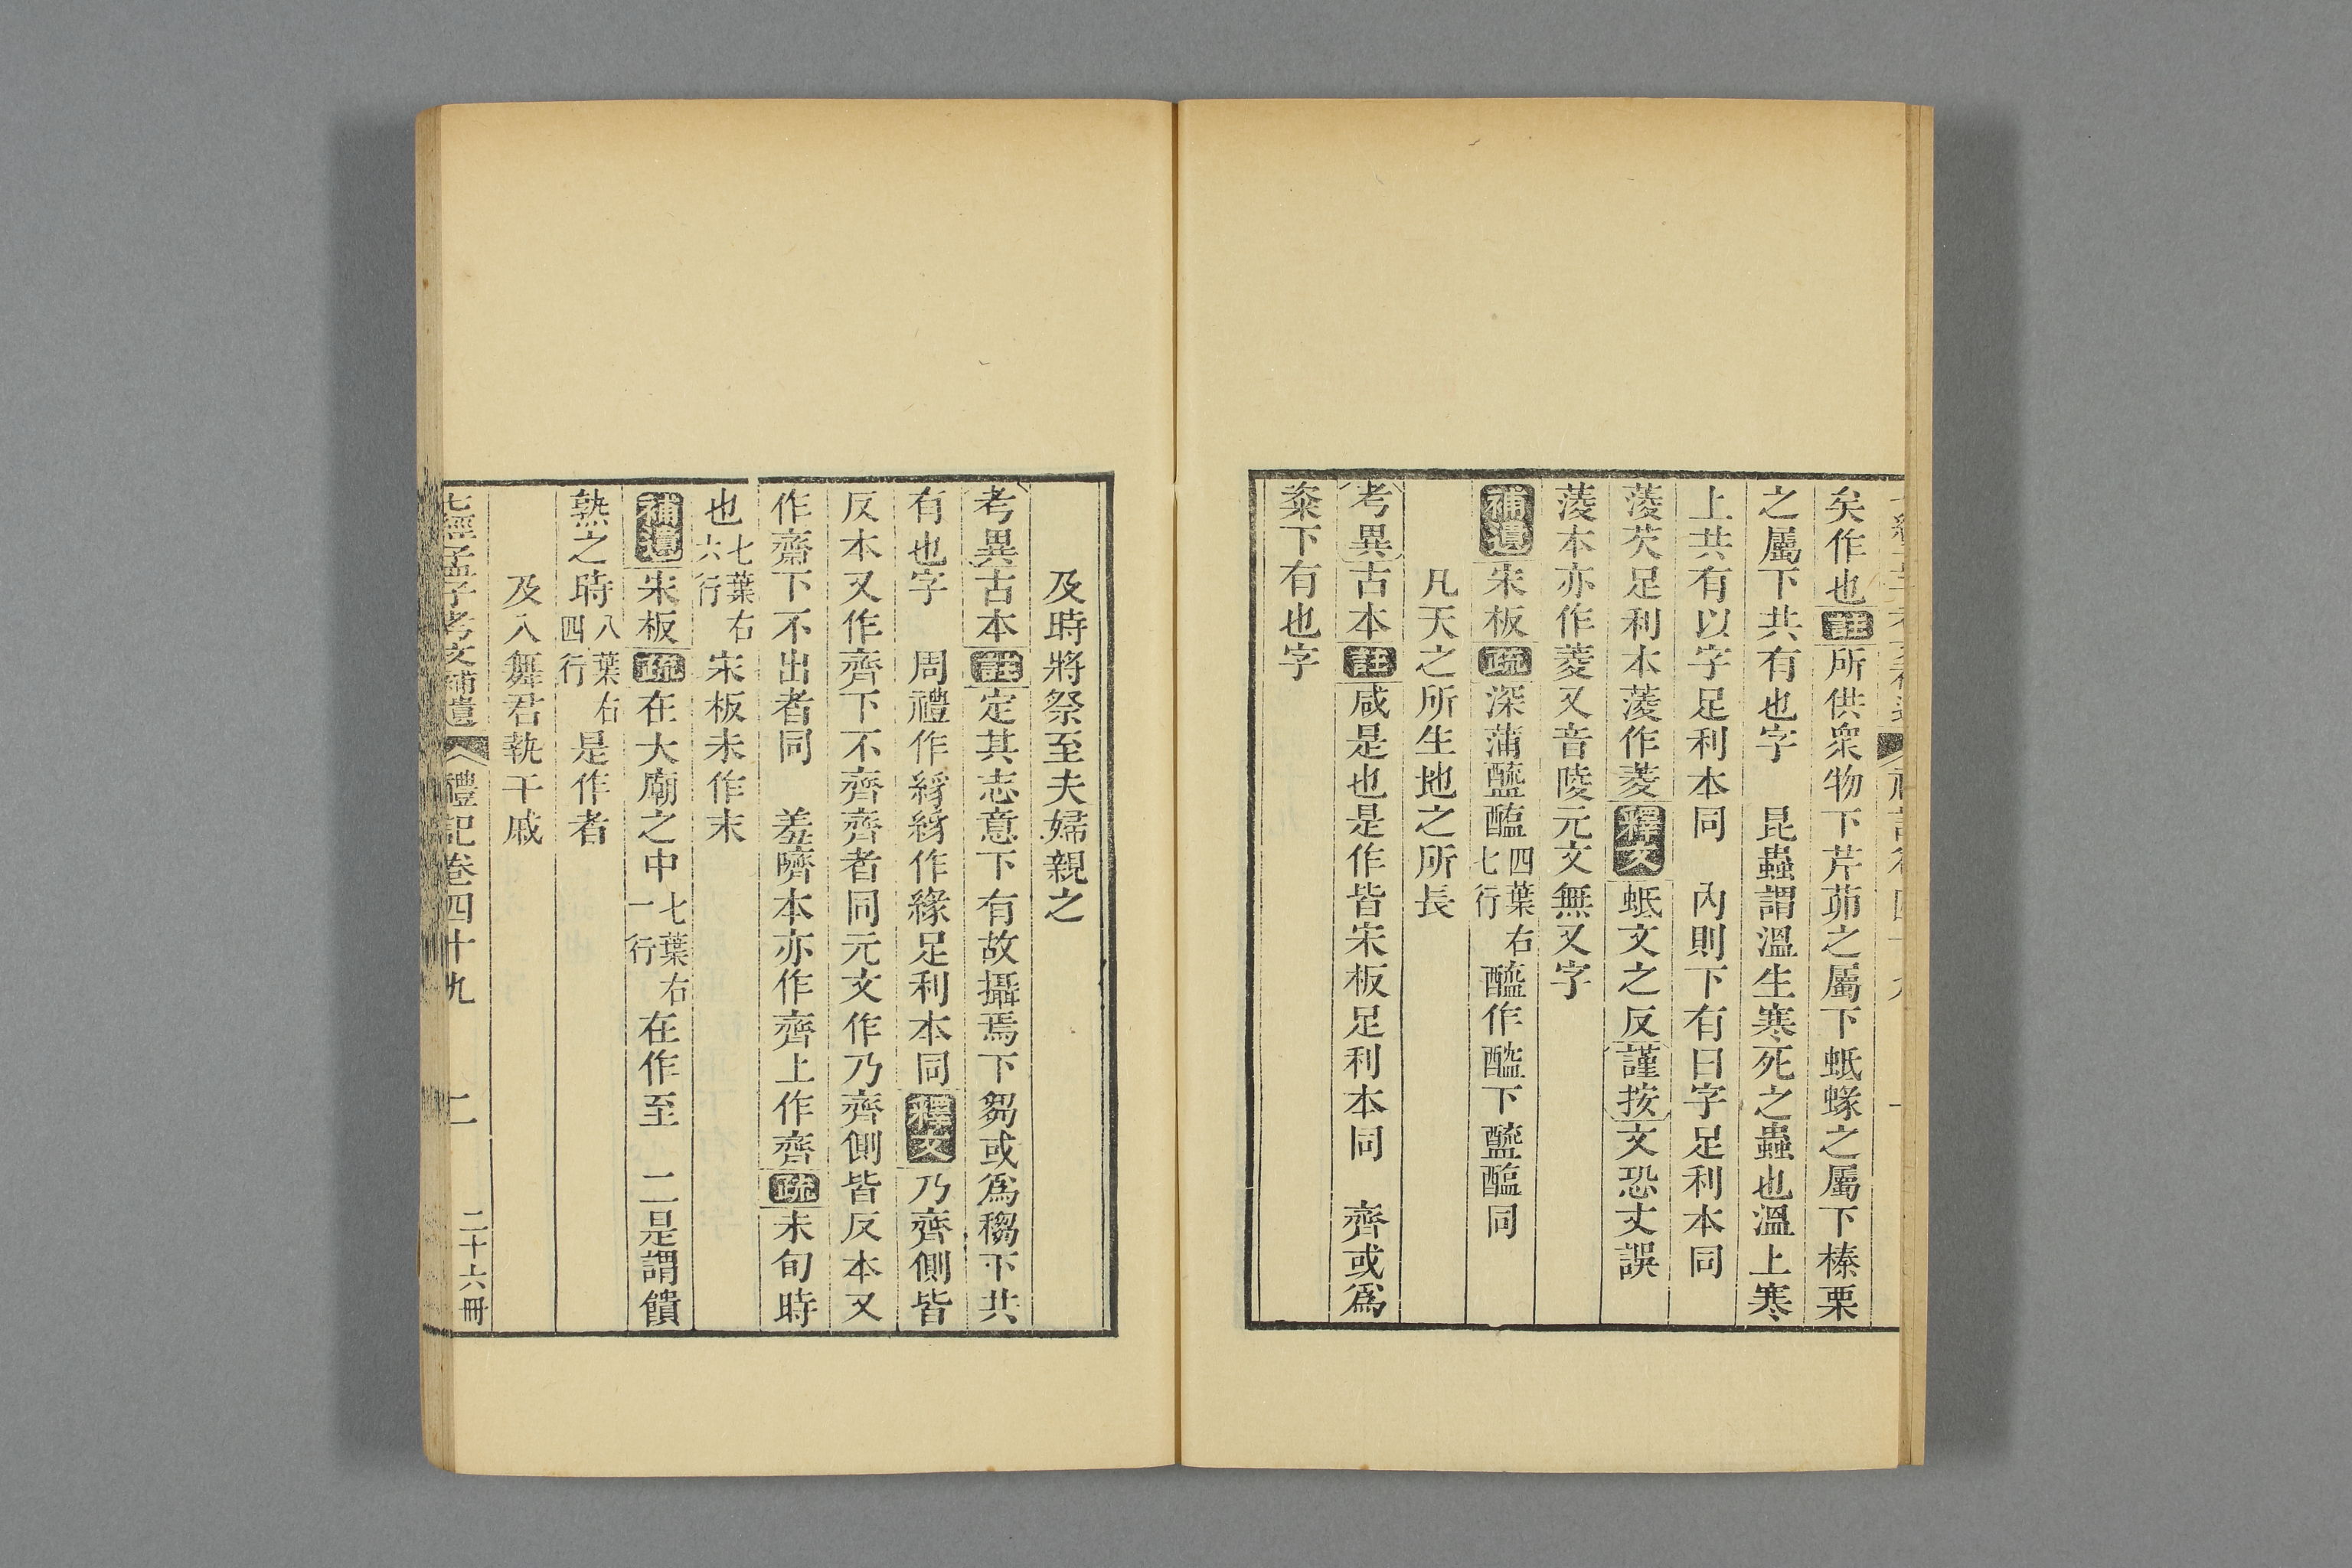 矣作也註所供衆物下芹茆之屬下蚳蝝之屬下榛栗
之屬下共有也字　昆蟲謂溫生寒死之蟲也溫上寒
上共有以字足利本同　內則下有曰字足利本同
蔆芡足利本蔆作菱釋文蚳文之反謹按文恐丈誤
蔆本亦作菱又音陵元文無又字
補遺宋板疏深蒲醓醢四葉右七行醓作䤈下醓醢同
凡天之所生地之所長
考異古本註咸是也是作皆宋板足利本同　齊或爲
粢下有也字
及時將祭至夫婦親之
考異古本註定其志意下有故攝焉下芻或爲究下共
有也字　周禮作絼絼作緣足利本同釋文乃齊側皆
反本又作齊下不齊齊者同元文作乃齊側皆反本又
作齋下不出者同　羞嚌本亦作齊上作齊疏未旬時
也七葉右六行宋板未作末
補遺宋板疏在大廟之中七葉右一行在作至　二是謂饋
熟之時八葉右四行是作者
及入舞君執干戚
七經孟子考文補遺　禮記卷四十九　二　二十六冊